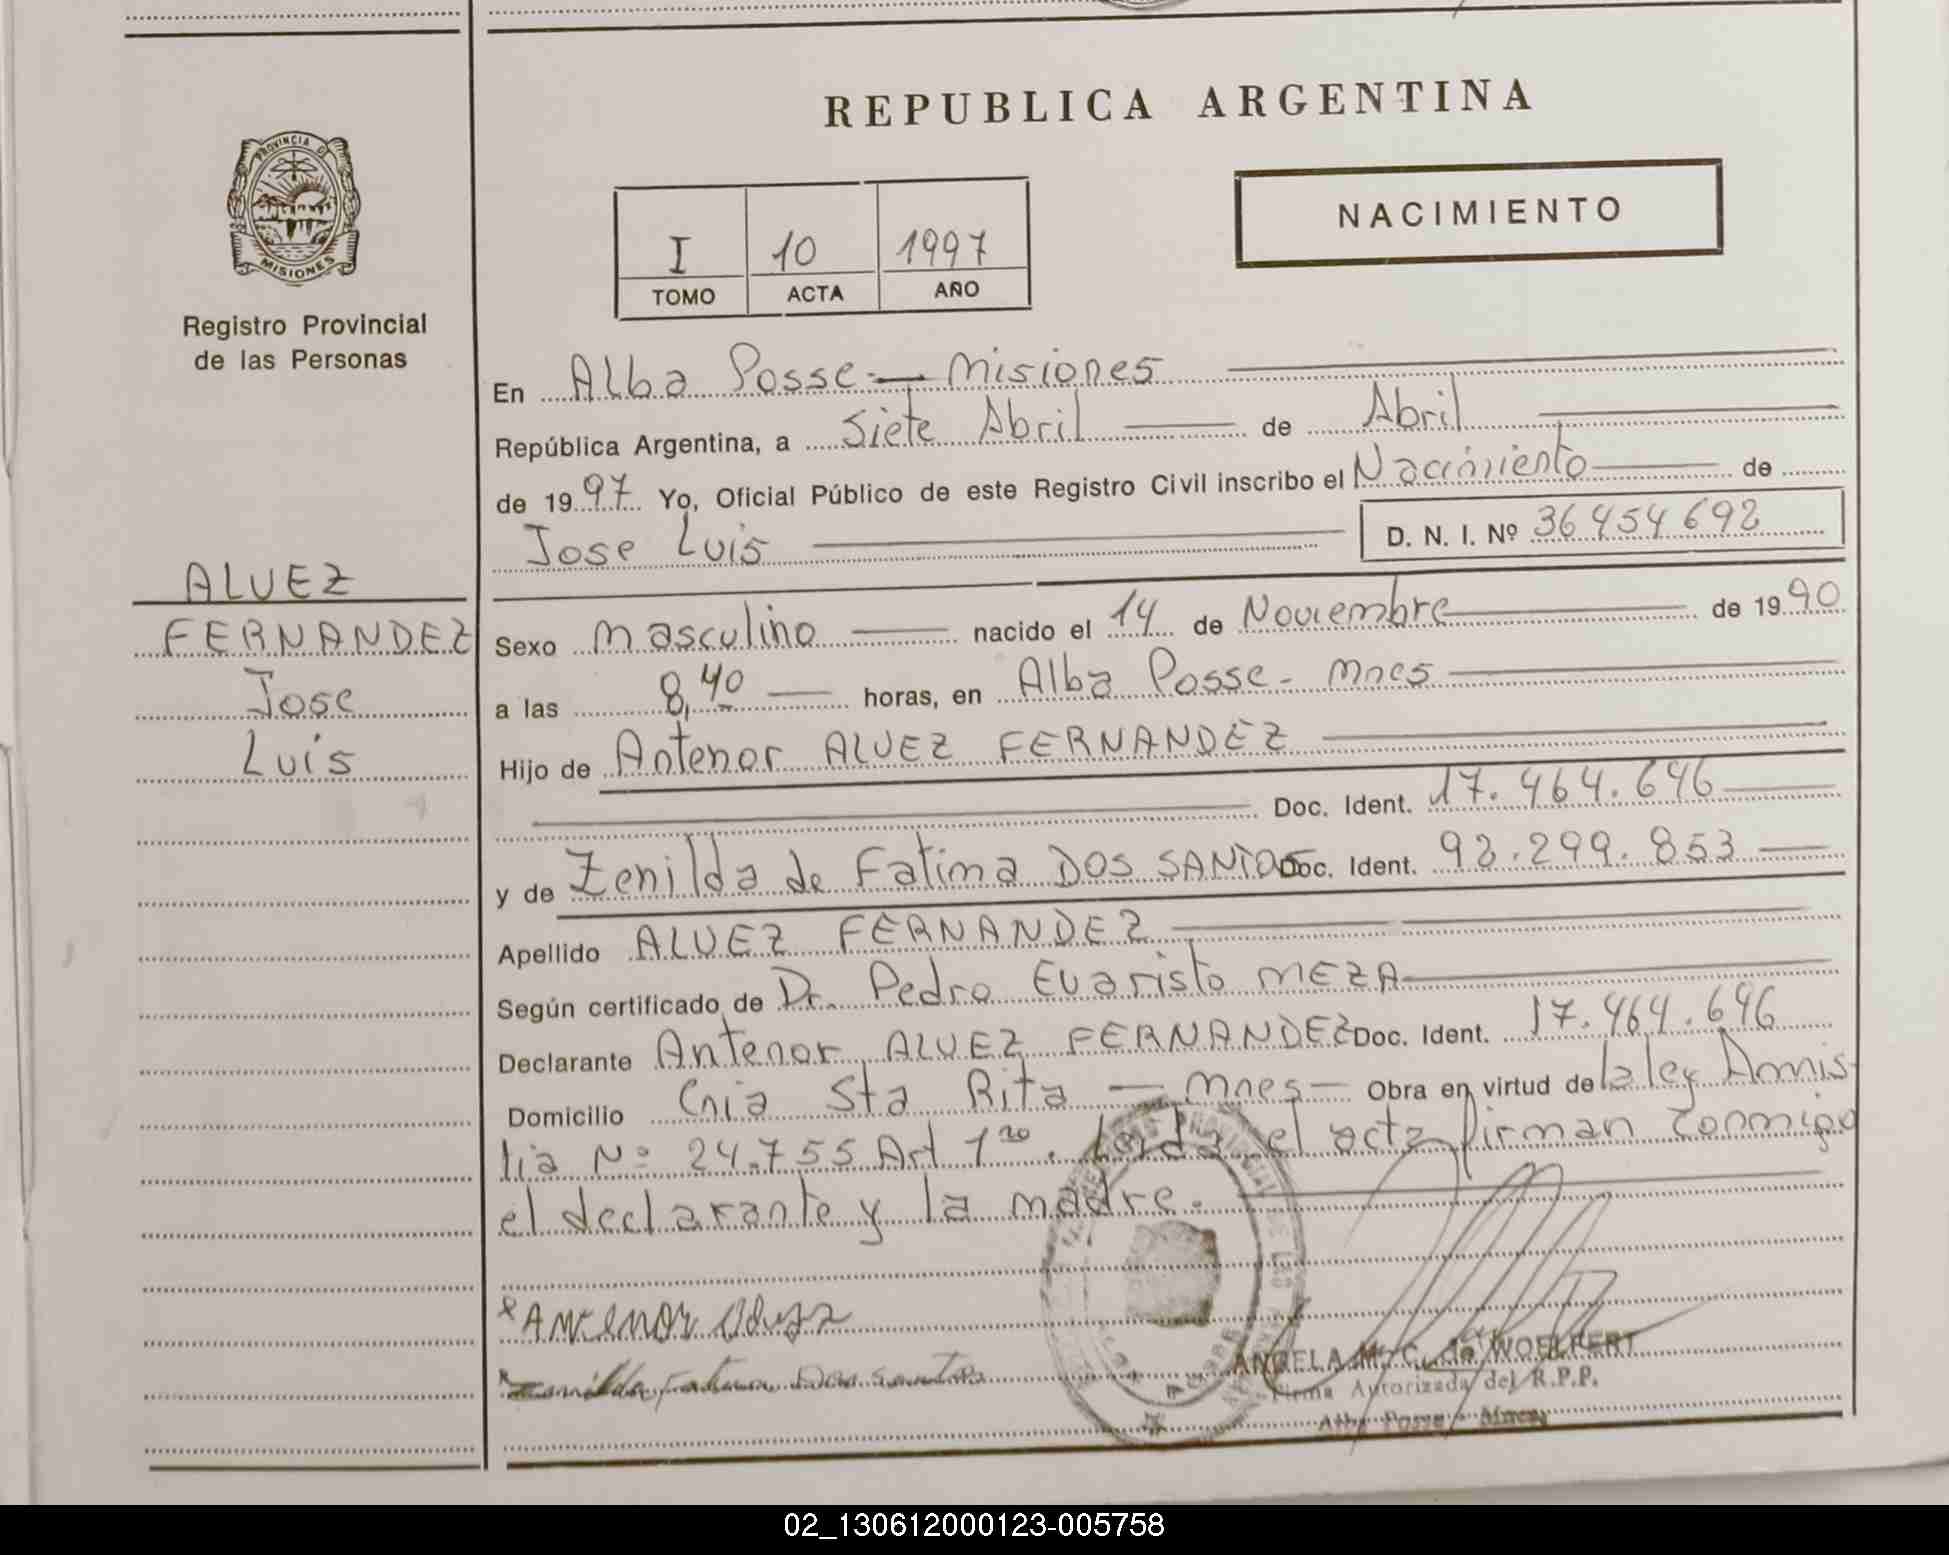 PROVINCIA DE
MISIONES
Registro Provincial
de las Personas
ALVEZ
FERNANDEZ
Jose
Luis
REPUBLICA ARGENTINA
NACIMIENTO
I 10 1997
TOMO ACTA AÑO
En Alba Posse - Misiones
República Argentina, a Siete Abril de Abril
de 1997 Yo, Oficial Público de este Registro Civil inscribo el Nacimiento de
Jose Luis D. N. I. Nº 36454692
Sexo Masculino nacido el 14 de Noviembre de 1990
a las 8,40 horas, en Alba Posse - Mnes
Hijo de Antenor ALVEZ FERNANDEZ
Doc. Ident. 17.464.646
y de Zenilda de Fatima DOS SANTOS Doc. Ident. 92.299.853
Apellido ALVEZ FERNANDEZ
Según certificado de Dr. Pedro Evaristo MEZA
Declarante Antenor ALVEZ FERNANDEZ Doc. Ident. 17.464.646
Domicilio Cnia Sta Rita - Mnes - Obra en virtud de la ley Amnis-
tia Nº 24.755 Art 1ro. Leida el acta firman conmigo
el declarante y la madre.
Antenor Alvez
Zenilda Fatima Dos Santos
ANGELA M. C. de WOELFERT
Firma Autorizada del R.P.P.
Alba Posse - Mnes.
02_130612000123-005758